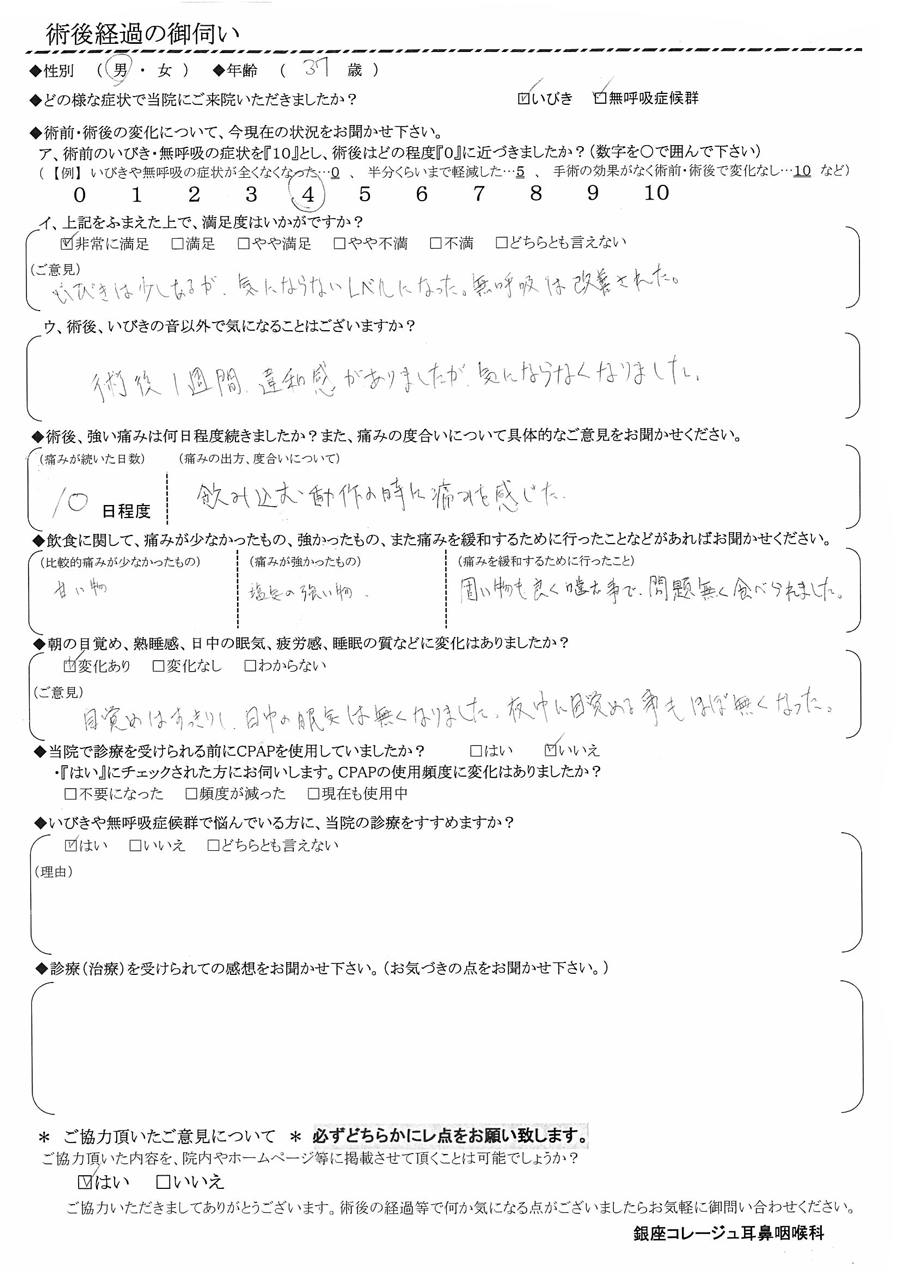 術後経過の御伺い
◆性別 （ 男 ・ 女 ） ◆年齢 （ 37 歳 ）
◆どの様な症状で当院にご来院いただきましたか？ ☑いびき ☑無呼吸症候群
◆術前・術後の変化について、今現在の状況をお聞かせ下さい。
ア、術前のいびき・無呼吸の症状を『10』とし、術後はどの程度『0』に近づきましたか？（数字を〇で囲んで下さい）
（【例】 いびきや無呼吸の症状が全くなくなった…0 、 半分くらいまで軽減した…5 、 手術の効果がなく術前・術後で変化なし…10 など）
0 1 2 3 4 5 6 7 8 9 10
イ、上記をふまえた上で、満足度はいかがですか？
☑非常に満足 □満足 □やや満足 □やや不満 □不満 □どちらとも言えない
（ご意見）
いびきは少しあるが、気にならないレベルになった。無呼吸は改善された。
ウ、術後、いびきの音以外で気になることはございますか？
術後1週間、違和感がありましたが、気にならなくなりました。
◆術後、強い痛みは何日程度続きましたか？また、痛みの度合いについて具体的なご意見をお聞かせください。
（痛みが続いた日数） （痛みの出方、度合いについて）
10 日程度 飲み込む動作の時に痛みを感じた。
◆飲食に関して、痛みが少なかったもの、強かったもの、また痛みを緩和するために行ったことなどがあればお聞かせください。
（比較的痛みが少なかったもの） （痛みが強かったもの） （痛みを緩和するために行ったこと）
甘い物 塩気の強い物。 固い物も良く噛む事で、問題無く食べられました。
◆朝の目覚め、熟睡感、日中の眠気、疲労感、睡眠の質などに変化はありましたか？
☑変化あり □変化なし □わからない
（ご意見）
目覚めはすっきりし、日中の眠気は無くなりました。夜中に目覚める事もほぼ無くなった。
◆当院で診療を受けられる前にCPAPを使用していましたか？ □はい ☑いいえ
・『はい』にチェックされた方にお伺いします。CPAPの使用頻度に変化はありましたか？
□不要になった □頻度が減った □現在も使用中
◆いびきや無呼吸症候群で悩んでいる方に、当院の診療をすすめますか？
☑はい □いいえ □どちらとも言えない
（理由）
◆診療（治療）を受けられての感想をお聞かせ下さい。（お気づきの点をお聞かせ下さい。）
＊ ご協力頂いたご意見について ＊ 必ずどちらかにレ点をお願い致します。
ご協力頂いた内容を、院内やホームページ等に掲載させて頂くことは可能でしょうか？
☑はい □いいえ
ご協力いただきましてありがとうございます。術後の経過等で何か気になる点がございましたらお気軽に御問い合わせください。
銀座コレージュ耳鼻咽喉科